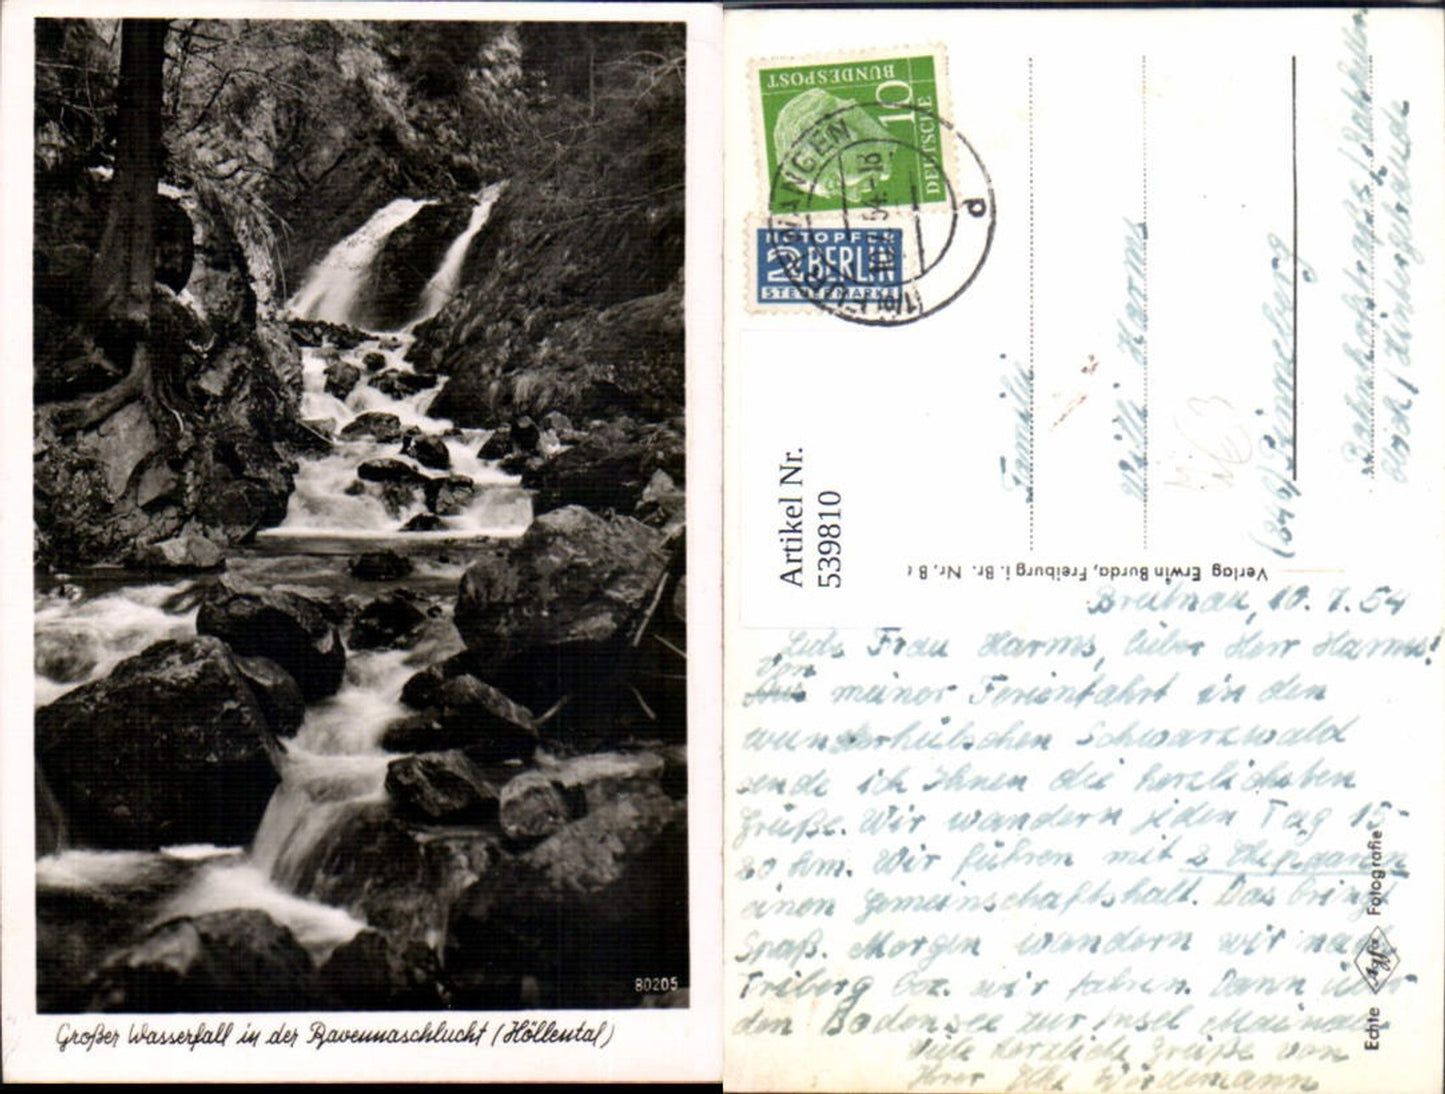 80205
Großer Wasserfall in der Ravennaschlucht (Höllental)
DEUTSCHE
BUNDESPOST
10
FURTWANGEN
54.-18
d
NOTOPFER
2 BERLIN
STEUERMARKE
Artikel Nr.
539810
Familie
Willi Harms
(24a) Lüneburg
Verlag Erwin Burda, Freiburg i. Br. Nr. B
Breitnau, 10.7.54
Liebe Frau Harms, lieber Herr Harms!
Von
meiner Ferienfahrt in den
wunderhübschen Schwarzwald
sende ich Ihnen die herzlichsten
Grüße. Wir wandern jeden Tag 15-
20 km. Wir führen mit 2 Ehepaaren
einen Gemeinschaftshalt. Das bringt
Spaß. Morgen wandern wir nach
Triberg bzw. wir fahren. Dann über
den Bodensee zur Insel Mainau.
Viele herzliche Grüße von
Ihrer
Echte Agfa Fotografie